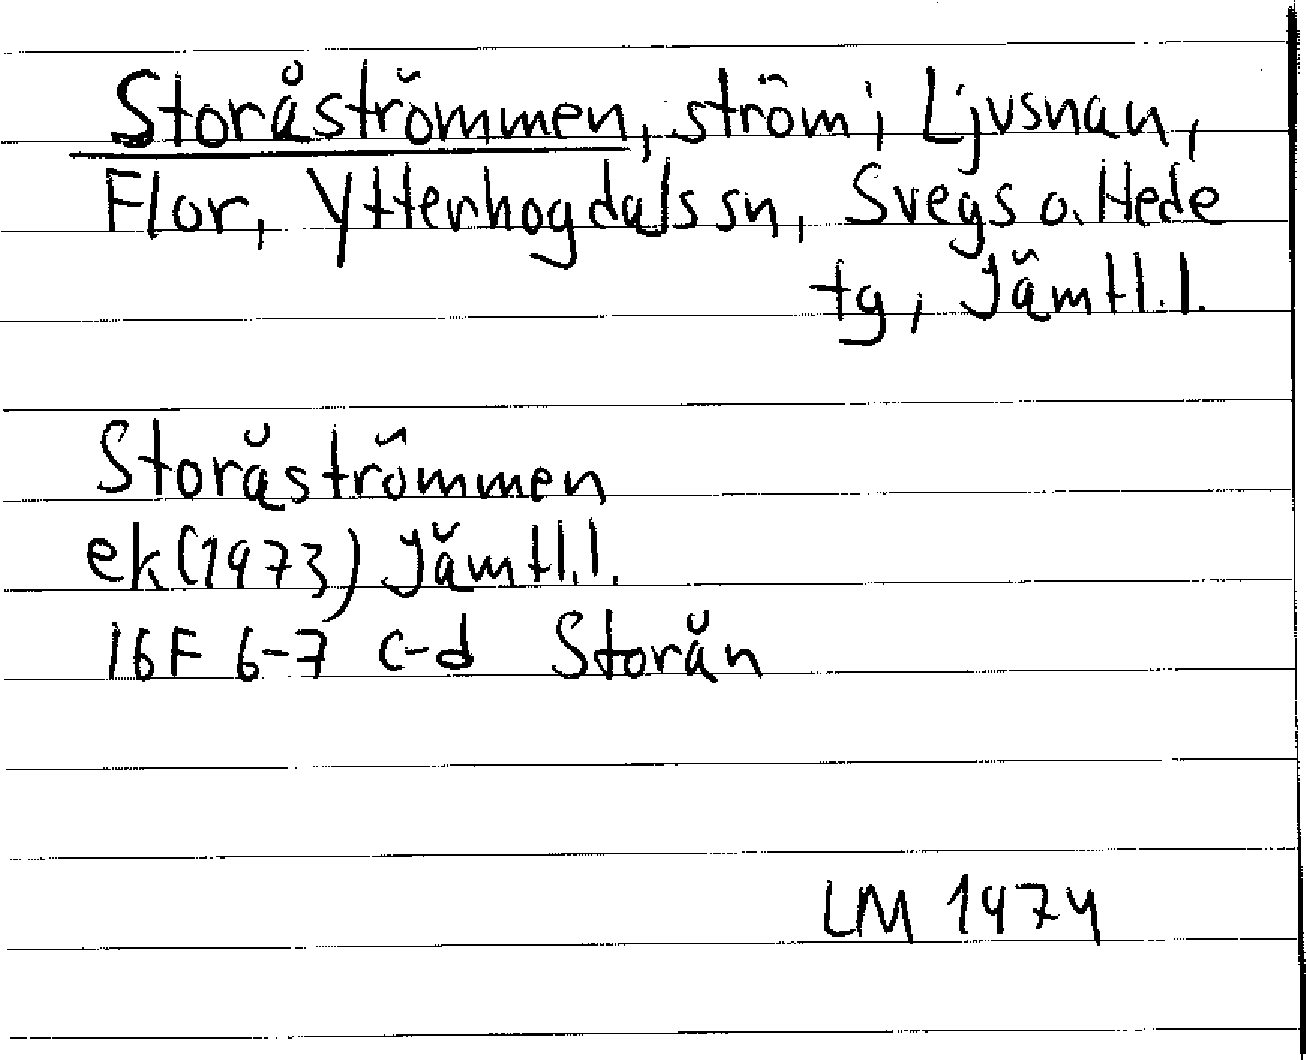 Storåströmmen, ström i Ljusnan,
Flor, Ytterhogdals sn, Svegs o. Hede
tg, Jämtl.l.
Storåströmmen
ek (1973) Jämtl.l.
16F 6-7 c-d Storån
LM 1974